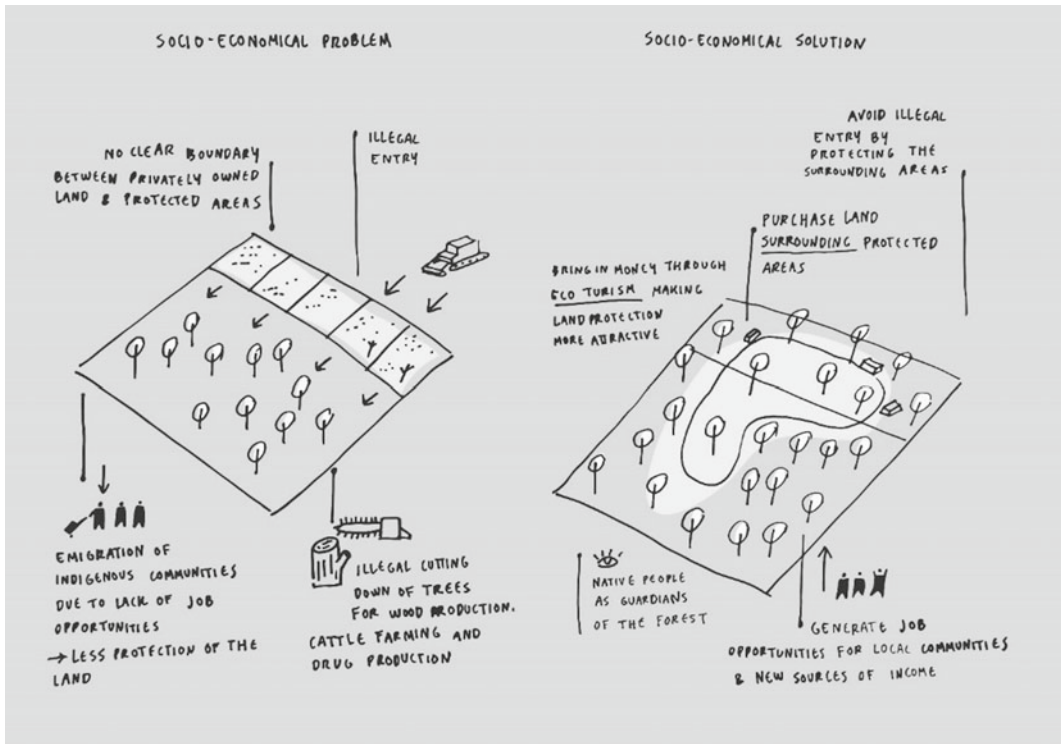 SOCIO-ECONOMICAL PROBLEM
NO CLEAR BOUNDARY
BETWEEN PRIVATELY OWNED
LAND & PROTECTED AREAS
ILLEGAL
ENTRY
EMIGRATION OF
INDIGENOUS COMMUNITIES
DUE TO LACK OF JOB
OPPORTUNITIES
→ LESS PROTECTION OF THE
LAND
ILLEGAL CUTTING
DOWN OF TREES
FOR WOOD PRODUCTION.
CATTLE FARMING AND
DRUG PRODUCTION
SOCIO-ECONOMICAL SOLUTION
AVOID ILLEGAL
ENTRY BY
PROTECTING THE
SURROUNDING AREAS
PURCHASE LAND
SURROUNDING PROTECTED
AREAS
BRING IN MONEY THROUGH
ECO TURISM MAKING
LAND PROTECTION
MORE ATTRACTIVE
NATIVE PEOPLE
AS GUARDIANS
OF THE FOREST
GENERATE JOB
OPPORTUNITIES FOR LOCAL COMMUNITIES
& NEW SOURCES OF INCOME